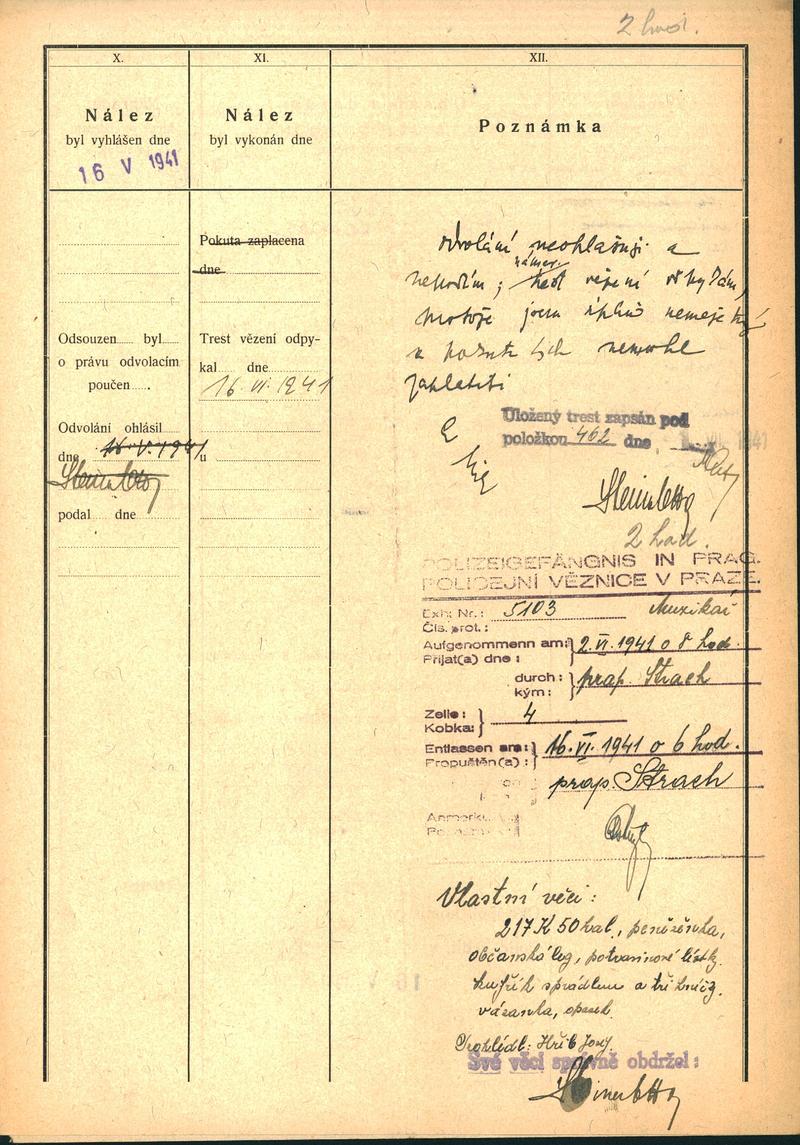 2 hod.
X.
Nález
byl vyhlášen dne
16 V 1941
Odsouzen byl
o právu odvolacím
poučen
Odvolání ohlásil
dne 16.V.1941
podal dne
XI.
Nález
byl vykonán dne
Pokuta zaplacena
dne
Trest vězení odpy-
kal dne
16. VI. 1941
u
XII.
Poznámka
odvolání neohlašuji a
nepodám; vězení
protože jsem úplně nemajetný
a pokutu bych nemohl
zaplatiti
Uložený trest zapsán pod
položkou 462 dne
Steiner Otto
2 hod.
POLIZEIGEFÄNGNIS IN PRAG.
POLICEJNÍ VĚZNICE V PRAZE.
Exh. Nr.: 5103 Muzikář
Čís. prot.:
Aufgenommenn am: 2. VI. 1941 o 8 hod.
Přijat(a) dne:
durch: prap. Strach
kým:
Zelle: 4
Kobka:
Entlassen am: 16. VI. 1941 o 6 hod.
Propuštěn(a):
prap. Strach
Vlastní věci:
217 K 50 hal., peněženka,
občanská leg., potravinové lístky.
kufřík s prádlem a tři knih
vázanka, opasek.
Prohlédl: Hříb Josef
Své věci správně obdržel:
Steiner Otto